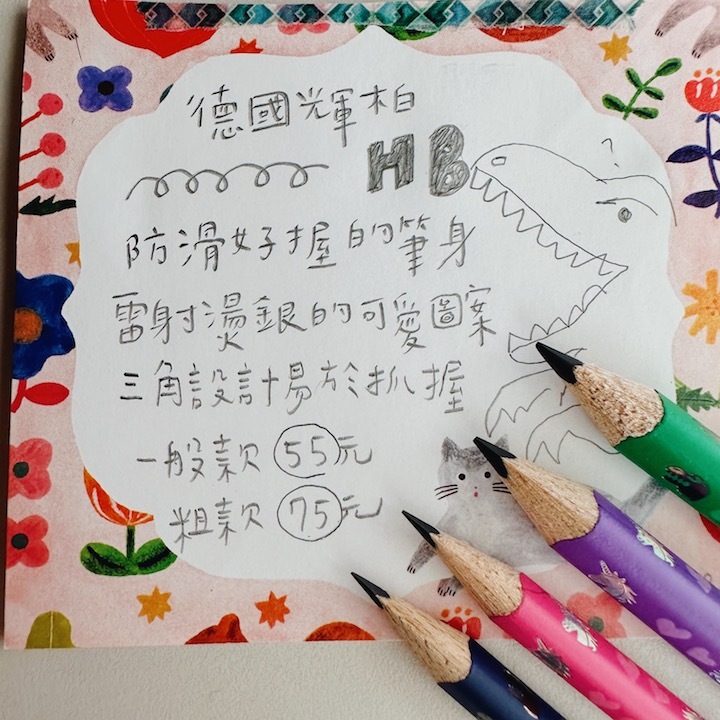 德國輝柏
HB
防滑好握的筆身
雷射燙銀的可愛圖案
三角設計易於抓握
一般款 55元
粗款 75元
?